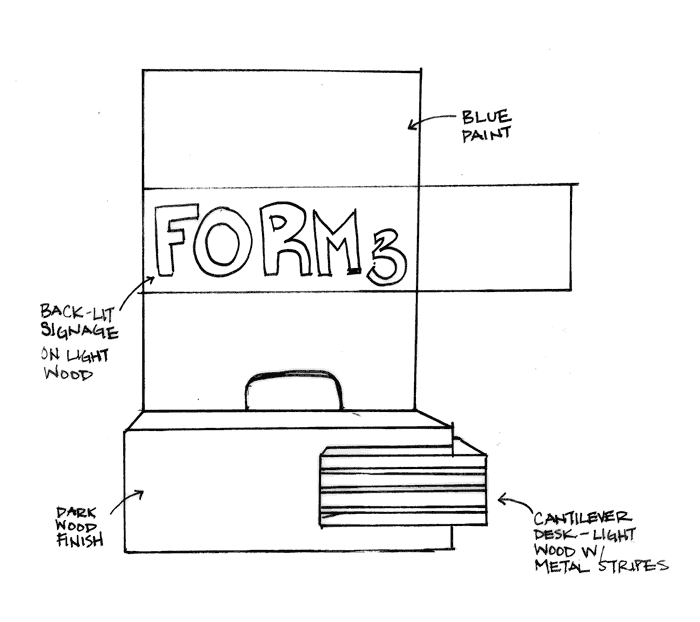 BLUE
PAINT
FORM 3
BACK-LIT
SIGNAGE
ON LIGHT
WOOD
DARK
WOOD
FINISH
CANTILEVER
DESK-LIGHT
WOOD W/
METAL STRIPES